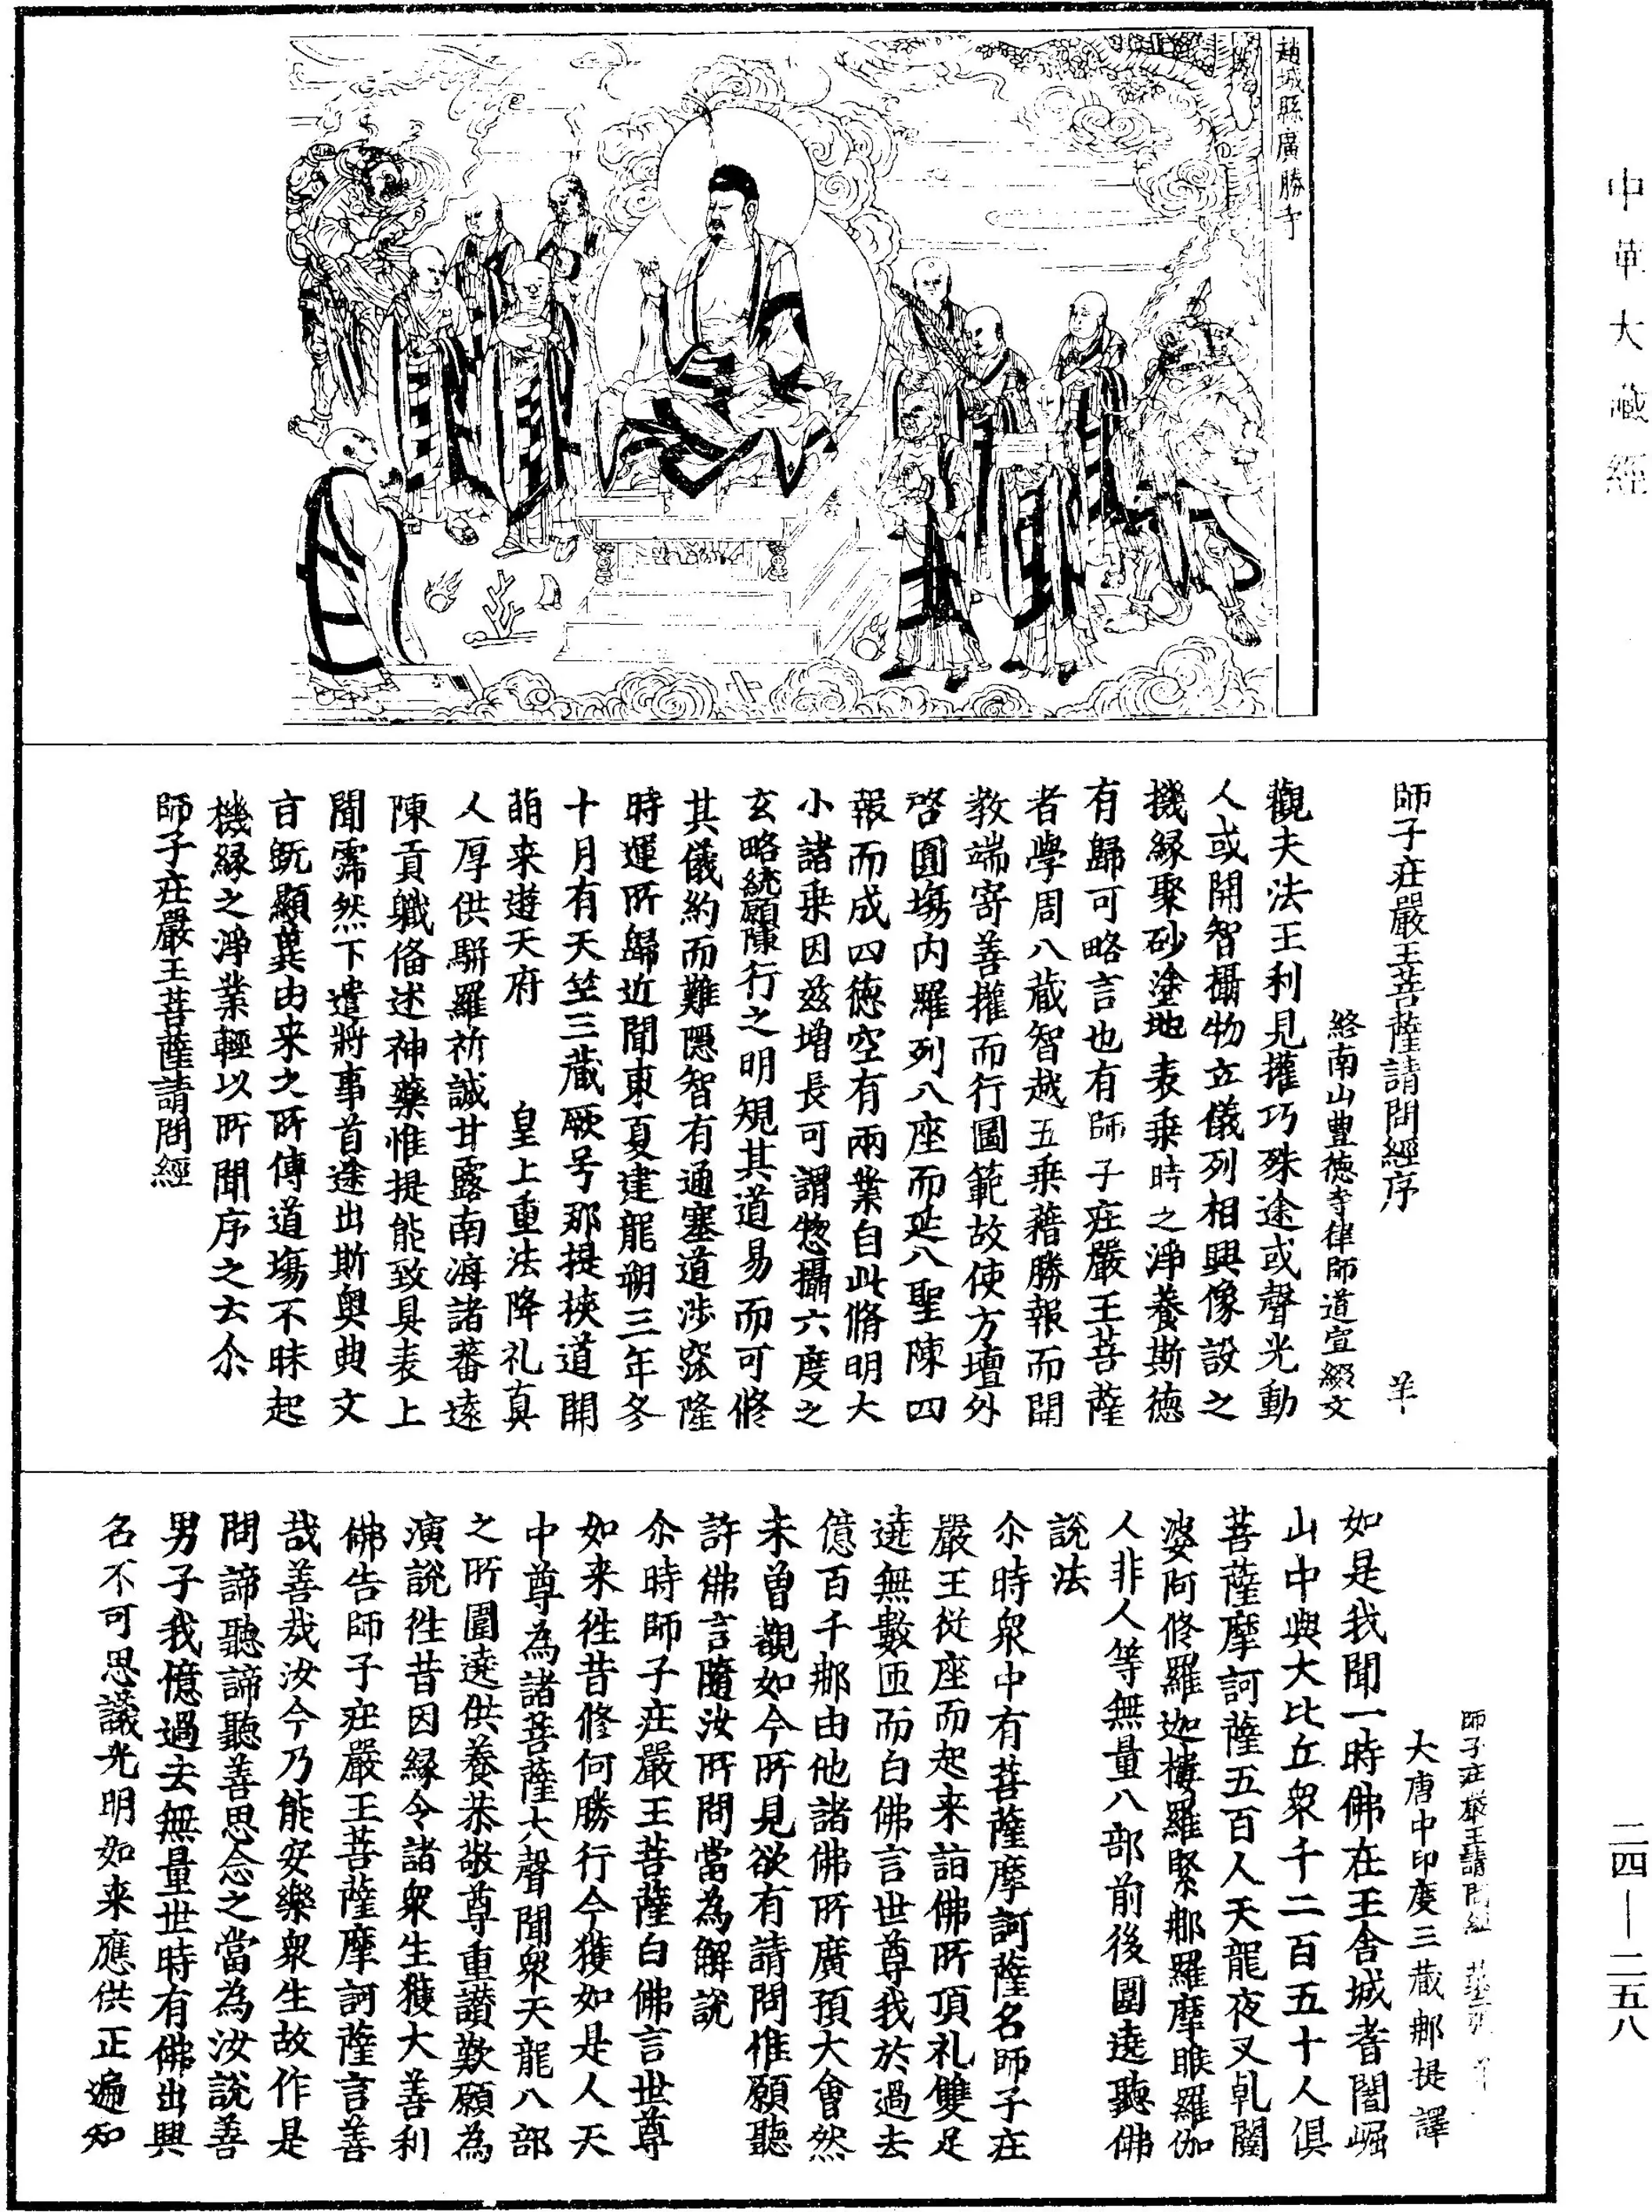 中華大藏經
趙城縣廣勝寺
師子莊嚴王菩薩請問經序 羊
終南山豊德寺律師道宣綴文
觀夫法王利見攉巧殊途或聲光動
人或開智攝物立儀列相興像設之
機縁聚砂塗地表乗時之淨養斯德
有歸可略言也有師子莊嚴王菩薩
者學周八蔵智越五乗藉勝報而開
教端寄善攉而行圖範故使方壇外
啓圓塲内羅列八座而延八聖陳四
報而成四德空有兩業自此脩明大
小諸乗因兹增長可謂惣攝六度之
玄略統願陳行之明規其道易而可脩
其儀約而難隱智有通塞道涉窊隆
時運所歸近聞東夏建龍朔三年冬
十月有天竺三蔵厥号那提挾道開
萌来遊天府 皇上重法降礼真
人厚供駢羅祈誠甘露南海諸蕃遠
陳貢軄俻述神藥惟提能致具表上
聞霈然下遣將事首途出斯奥典文
言既顯異由来之所傳道塲不昧起
機縁之淨業輕以所聞序之云尒
師子莊嚴王菩薩請問經
師子莊嚴王請問經
大唐中印度三蔵那提譯
如是我聞一時佛在王舍城耆闍崛
山中與大比丘衆千二百五十人俱
菩薩摩訶薩五百人天龍夜叉乹闥
婆阿脩羅迦樓羅緊那羅摩睺羅伽
人非人等無量八部前後圍遶聽佛
說法
尒時衆中有菩薩摩訶薩名師子莊
嚴王從座而起来詣佛所頂礼雙足
遶無數匝而白佛言世尊我於過去
億百千那由他諸佛所廣預大會然
未曽覩如今所見欲有請問惟願聽
許佛言隨汝所問當為解說
尒時師子莊嚴王菩薩白佛言世尊
如来徃昔修何勝行今獲如是人天
中尊為諸菩薩大聲聞衆天龍八部
之所圍遶供養恭敬尊重讃歎願為
演說徃昔因縁令諸衆生獲大善利
佛告師子莊嚴王菩薩摩訶薩言善
哉善哉汝今乃能安樂衆生故作是
問諦聽諦聽善思念之當為汝說善
男子我憶過去無量世時有佛出興
名不可思議光明如来應供正遍知
二四—二五八